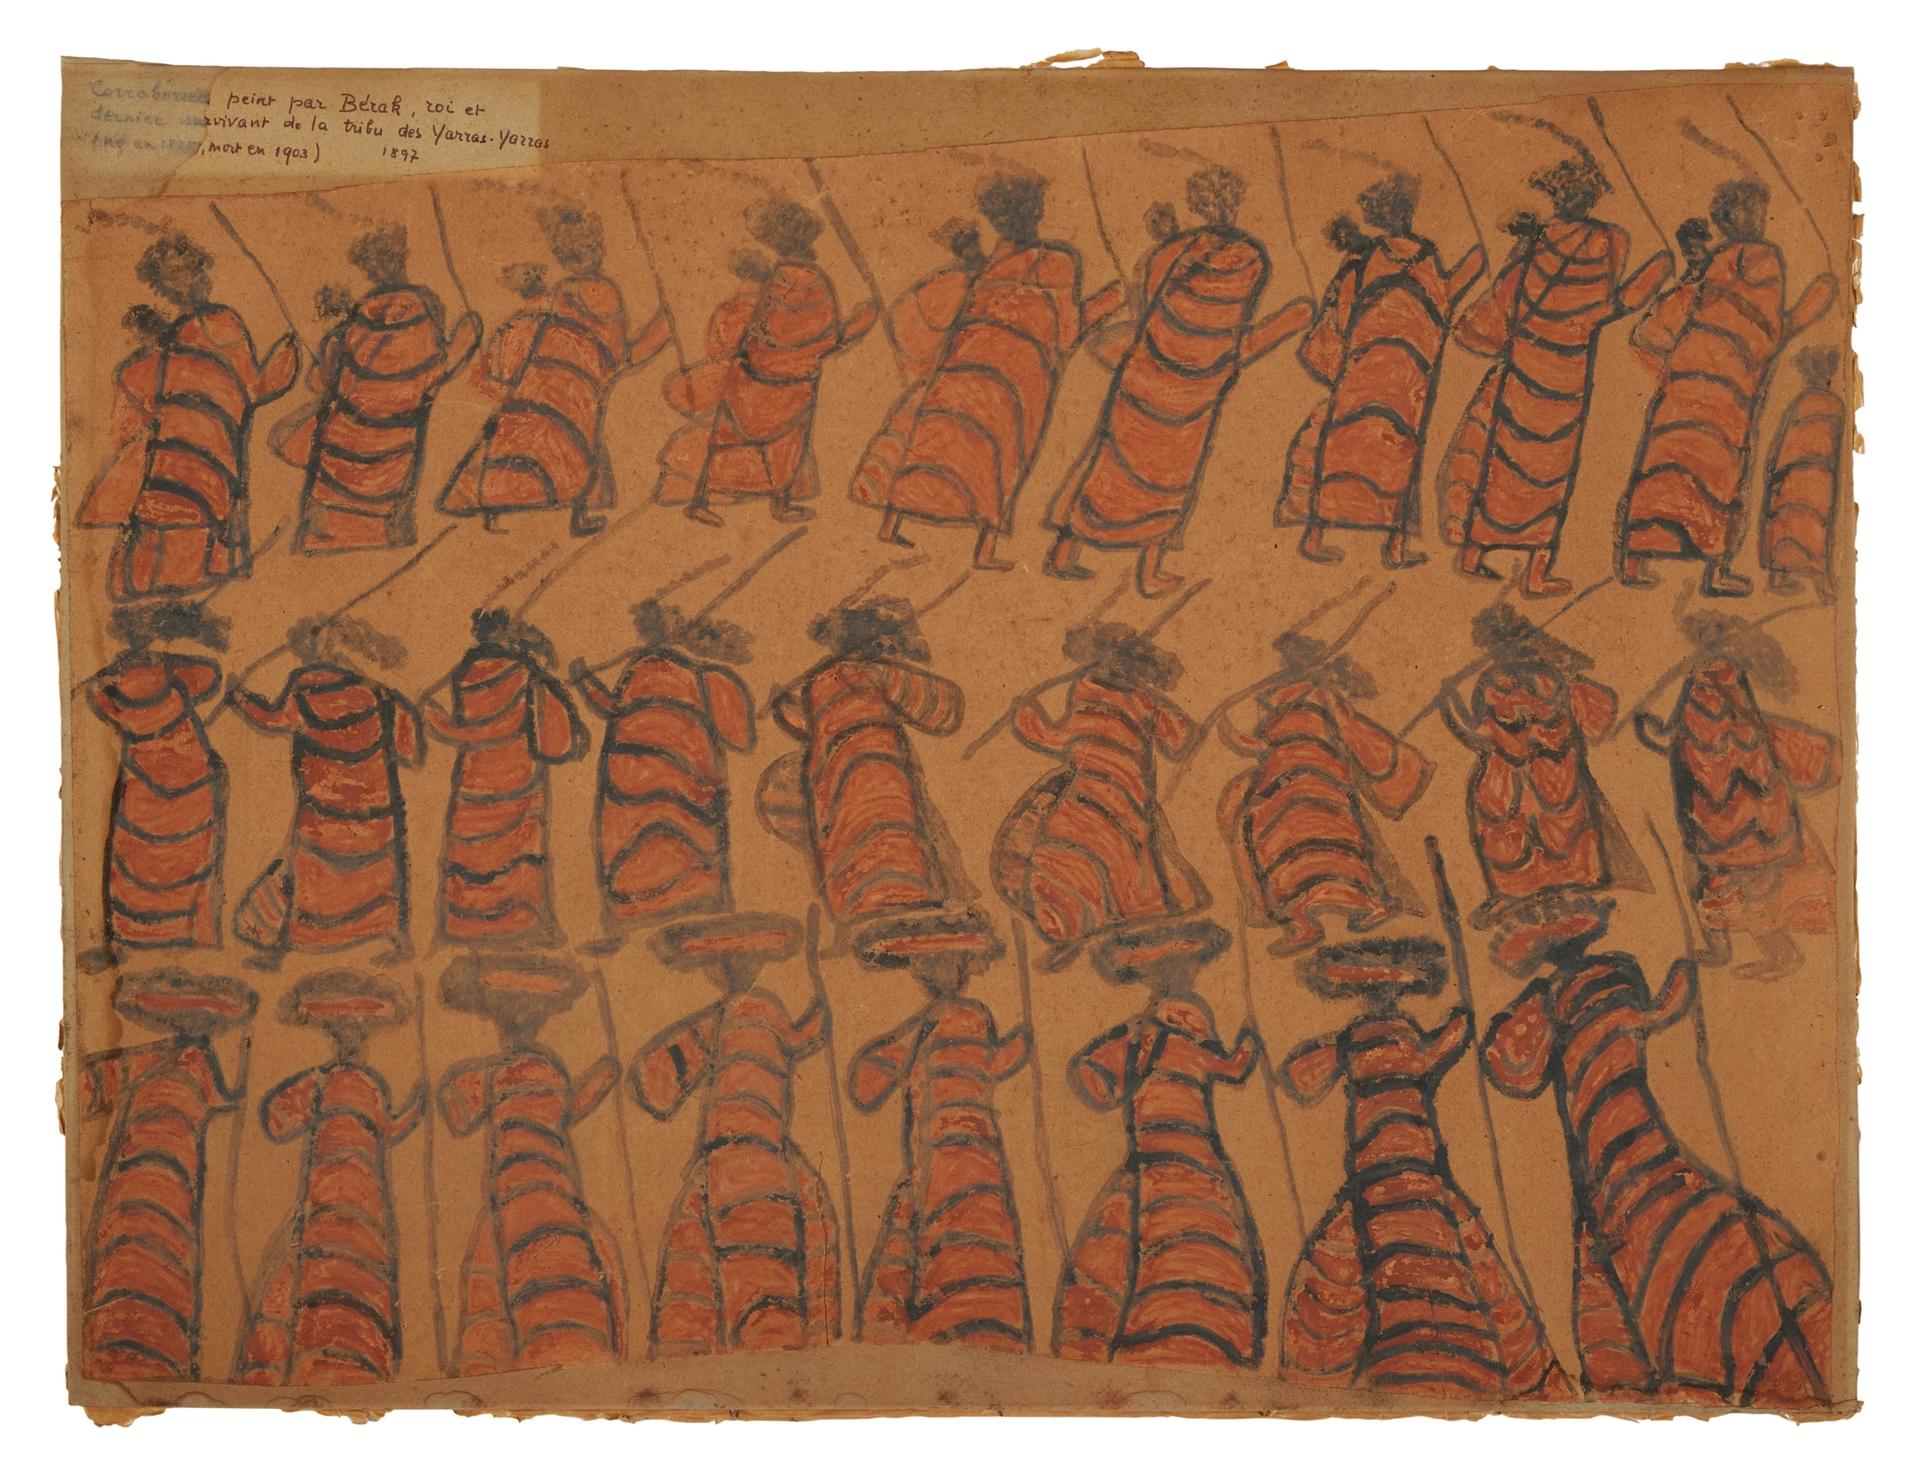 Corraborree peint par Bérak, roi et
dernier survivant de la tribu des Yarras-Yarras
(né en , mort en 1903) 1897